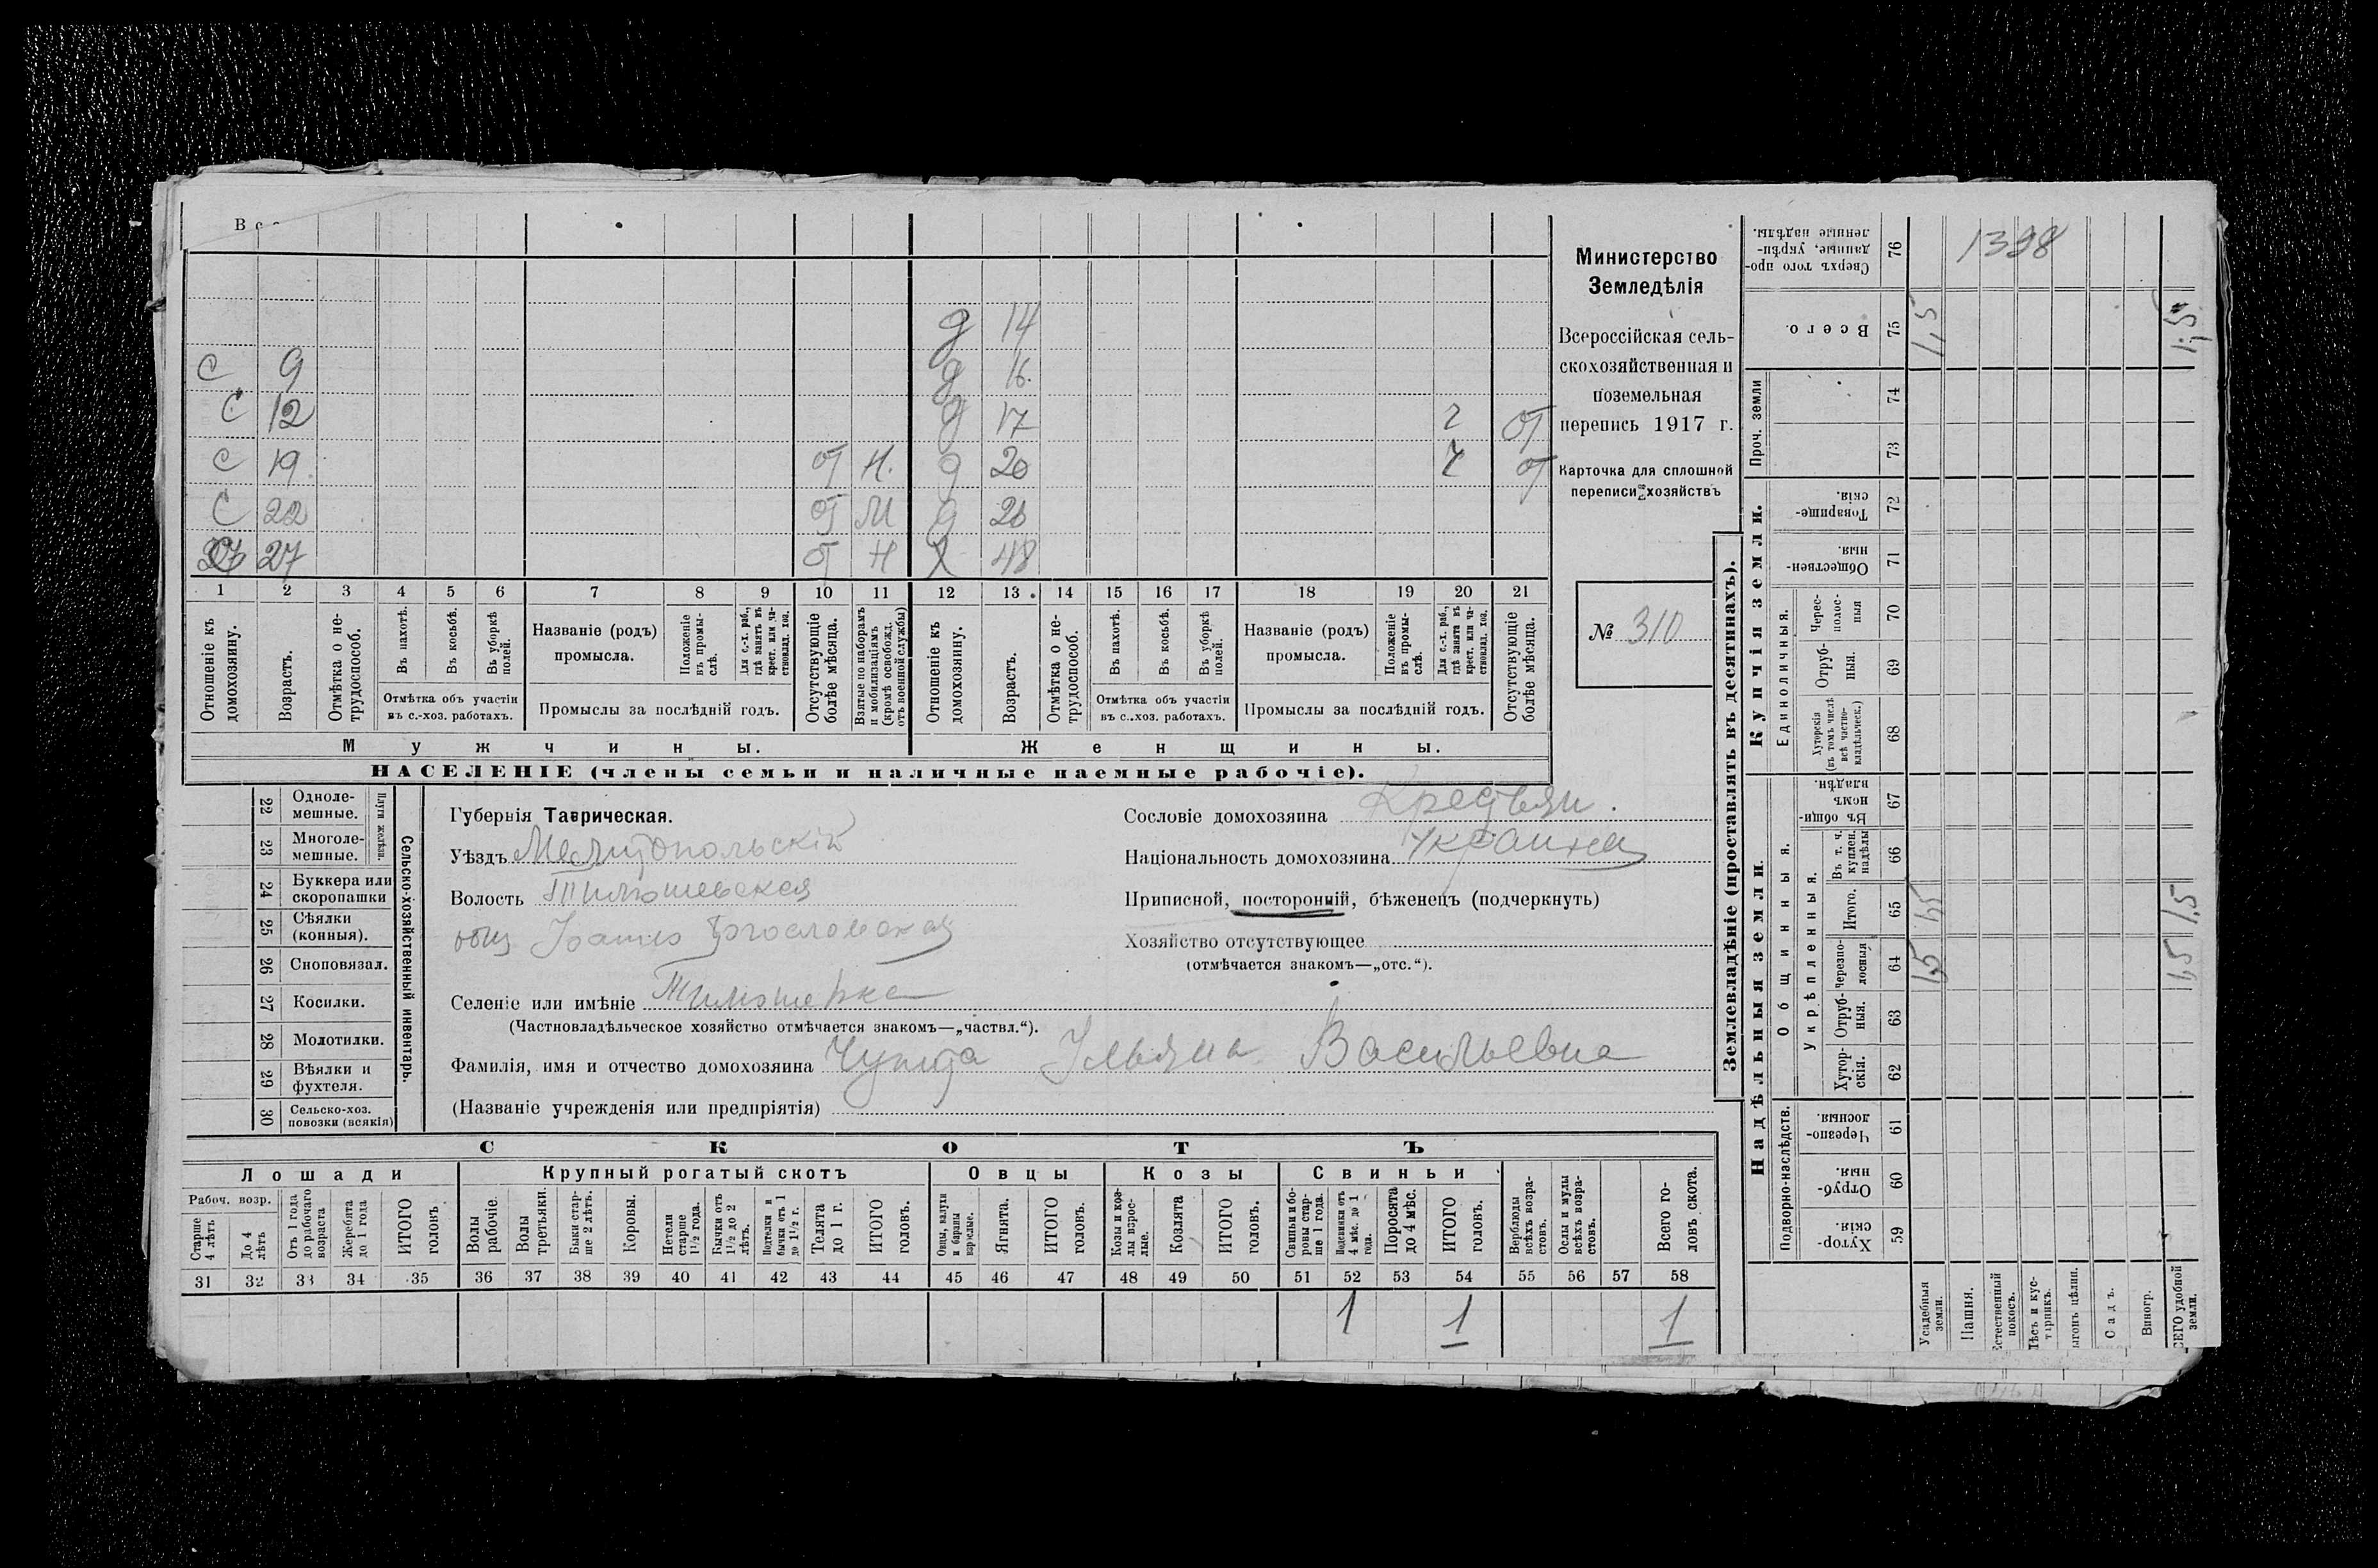 В с
д 14
С 9 д 16.
С 12 д 17 2 от
С 19. от Н. д 20 2 от
С 22 от М д 20
27 от Н Х 48
1 2 3 4 5 6 7 8 9 10 11 12 13 14 15 16 17 18 19 20 21
Отношеніе къ домохозяину.
Возрастъ.
Отмѣтка о не-трудоспособ.
Въ пахотѣ.
Въ косьбѣ.
Въ уборкѣ полей.
Отмѣтка объ участіи въ с.-хоз. работахъ.
Названіе (родъ) промысла.
Положеніе въ промы-слѣ.
Для с.-х. раб., гдѣ занятъ въ крест. или ча-стновлад. хоз.
Промыслы за послѣдній годъ.
Отсутствующіе болѣе мѣсяца.
Взятые по наборамъ и мобилизаціямъ (кромѣ освобожд. отъ военной службы)
Отношеніе къ домохозяину.
Возрастъ.
Отмѣтка о не-трудоспособ.
Въ пахотѣ.
Въ косьбѣ.
Въ уборкѣ полей.
Отмѣтка объ участіи въ с.-хоз. работахъ.
Названіе (родъ) промысла.
Положеніе въ промы-слѣ.
Для с.-х. раб., гдѣ занята въ крест. или ча-стновлад. хоз.
Промыслы за послѣдній годъ.
Отсутствующіе болѣе мѣсяца.
Мужчины.
Женщины.
НАСЕЛЕНІЕ (члены семьи и наличные наемные рабочіе).
Министерство
Земледѣлія
Всероссійская сель-
скохозяйственная и
поземельная
перепись 1917 г.
Карточка для сплошной
переписи хозяйствъ
№ 310
22 Одноле-мешные.
23 Многоле-мешные.
Плуги желѣзн.
24 Буккера или скоропашки
25 Сѣялки (конныя).
26 Сноповязал.
27 Косилки.
28 Молотилки.
29 Вѣялки и фухтеля.
30 Сельско-хоз. повозки (всякія)
Сельско-хозяйственный инвентарь.
Губернія Таврическая.
Уѣздъ Мелитопольскій
Волость Тимошевская
общ Іоанно Богословская
Селеніе или имѣніе Тимошевка
(Частновладѣльческое хозяйство отмѣчается знакомъ—„частвл.“).
Фамилія, имя и отчество домохозяина Ульяна Васильевна
(Названіе учрежденія или предпріятія)
Сословіе домохозяина Крестьян.
Національность домохозяина Украинка
Приписной, посторонній, бѣженецъ (подчеркнуть)
Хозяйство отсутствующее
(отмѣчается знакомъ—„отс.“).
СКОТЪ
Лошади
Крупный рогатый скотъ
Овцы
Козы
Свиньи
Рабоч. возр.
Старше 4 лѣтъ
До 4 лѣтъ
Отъ 1 года до рабочаго возраста
Жеребята до 1 года
ИТОГО головъ.
Волы рабочіе.
Волы третьяки.
Быки стар-ше 2 лѣтъ.
Коровы.
Нетели старше 1 1/2 года.
Бычки отъ 1 1/2 до 2 лѣтъ.
Подтелки и бычки отъ 1 до 1 1/2 г.
Телята до 1 г.
ИТОГО головъ.
Овцы, валухи и бараны взрослые.
Ягнята.
ИТОГО головъ.
Козы и коз-лы взрос-лые.
Козлята
ИТОГО головъ.
Свиньи и бо-ровы стар-ше 1 года.
Подсвинки отъ 4 мѣс. до 1 года.
Поросята до 4 мѣс.
ИТОГО головъ.
Верблюды всѣхъ возра-стовъ.
Ослы и мулы всѣхъ возра-стовъ.
Всего го-ловъ скота.
31 32 33 34 35 36 37 38 39 40 41 42 43 44 45 46 47 48 49 50 51 52 53 54 55 56 57 58
1 1 1
Землевладѣніе (проставлять въ десятинахъ).
Купчія земли.
Надѣльныя земли.
Сверхъ того про-данные, укрѣп-ленные надѣлы. 76
1398
Всего. 75 1,5 1,5
Проч. земли 74 73
Товарище-скія. 72
Обществен-ныя. 71
Единоличныя.
Черес-полос-ныя 70
Отруб-ныя. 69
Хуторскія (въ томъ числѣ всѣ частно-владѣльческ.) 68
Общинныя.
Въ общи-номъ владѣн. 67
Укрѣпленныя.
Въ т. ч. куплен. надѣлы 66
Итого. 65 1,5 1,5
Черезпо-лосныя 64 1,5 1,5
Отруб-ныя. 63
Хутор-скія. 62
Подворно-наслѣдств.
Черезпо-лосныя. 61
Отруб-ныя. 60
Хутор-скія. 59
Усадебныя земли.
Пашня.
Естественный покосъ.
Лѣсъ и кус-тарникъ.
Садъ.
Виногр.
СЕГО удобной земли.